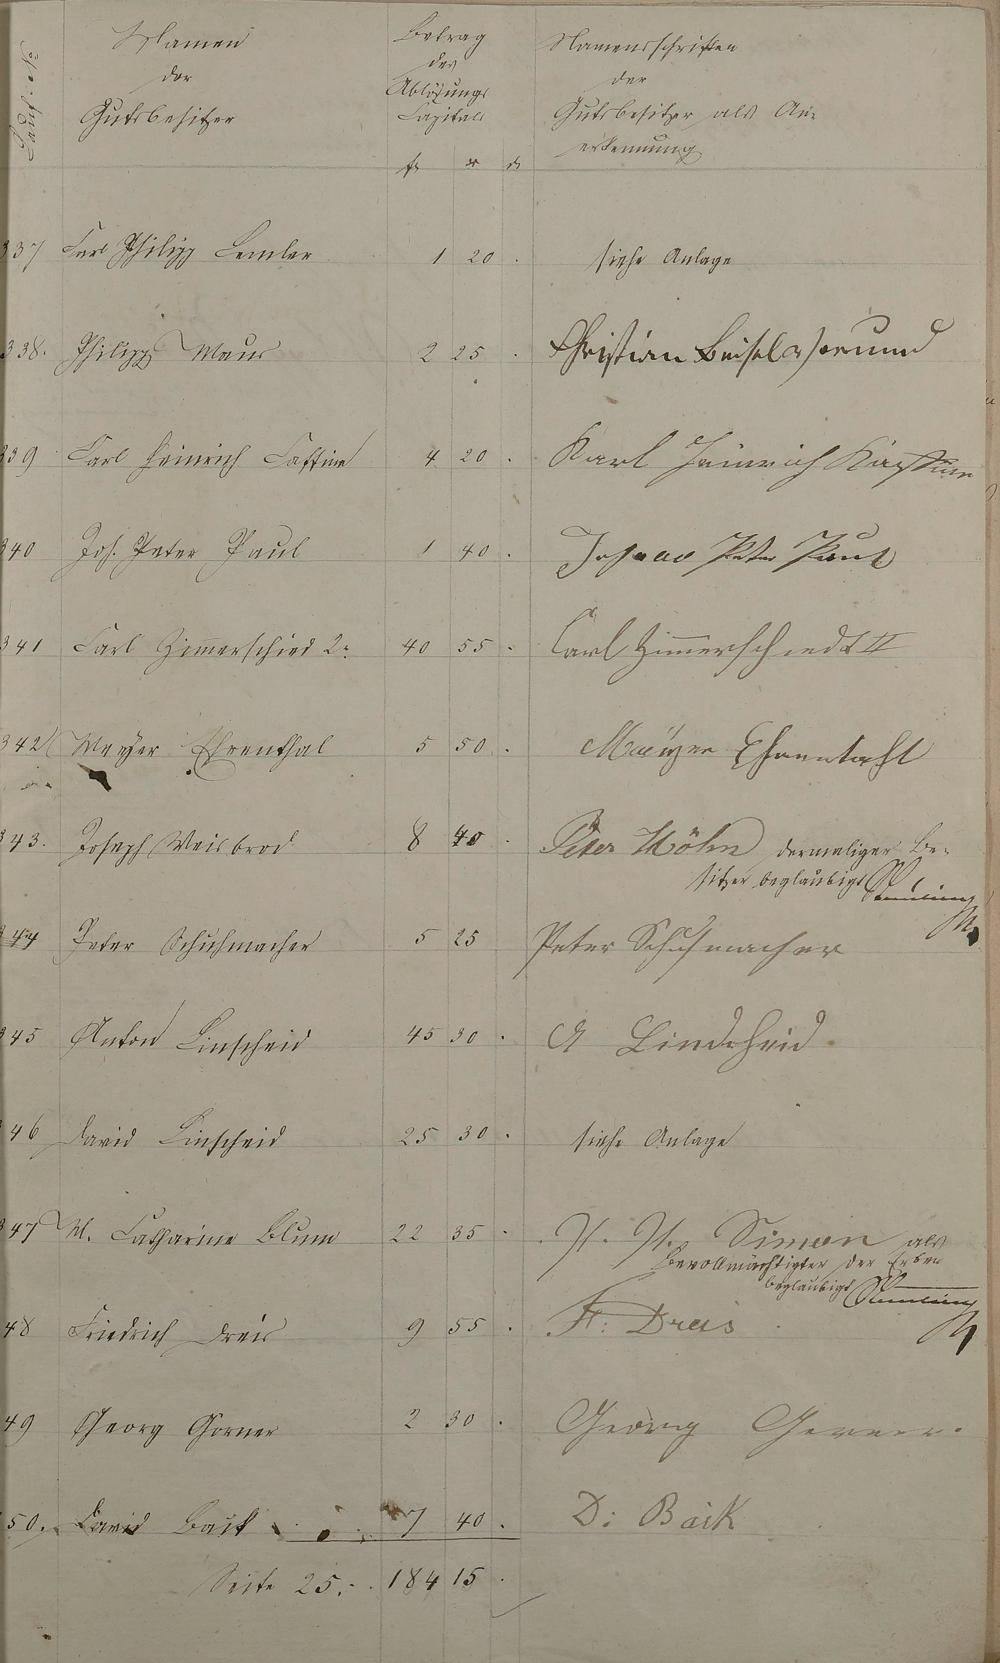 Namen
der
Gutsbesitzer
Betrag
des
Ablösungs
Capitals
Namensschriften
der
Gutsbesitzer als An-
erkennung
fl x
337 Carl Philipp Lemler 1 20 . siehe Anlage
338. Philipp Maus 2 25 . Christian Beisel
339 Carl Heinrich 4 20 . Karl Heinrich
340 Joh. Peter Paul 1 40 . Peter Paul
341 Carl Zim̄erschied 2r 40 55 . Carl Zimmerschiedt II
342 Meyer Ehrenthal 5 50 . Ehrentahl
343. Joseph Weisbrod 8 40 . Peter Höhn dermaliger Be-
sitzer beglaubigt
344 Peter Schuhmacher 5 25 Peter Schuhmacher
345 Anton Linscheid 45 30 . A Lindscheid
346 David Linscheid 25 30 . siehe Anlage
347 W. Catharine Blum 22 35 . H. H. Simon als
Bevollmächtigter der Erben
beglaubigt
48 Friedrich Dreis 9 55 . Fr: Dreis
49 Georg Gerner 2 30 . Georg Gerner.
50. David Back 7 40 . D: Back
Seite 25. 184 15 .